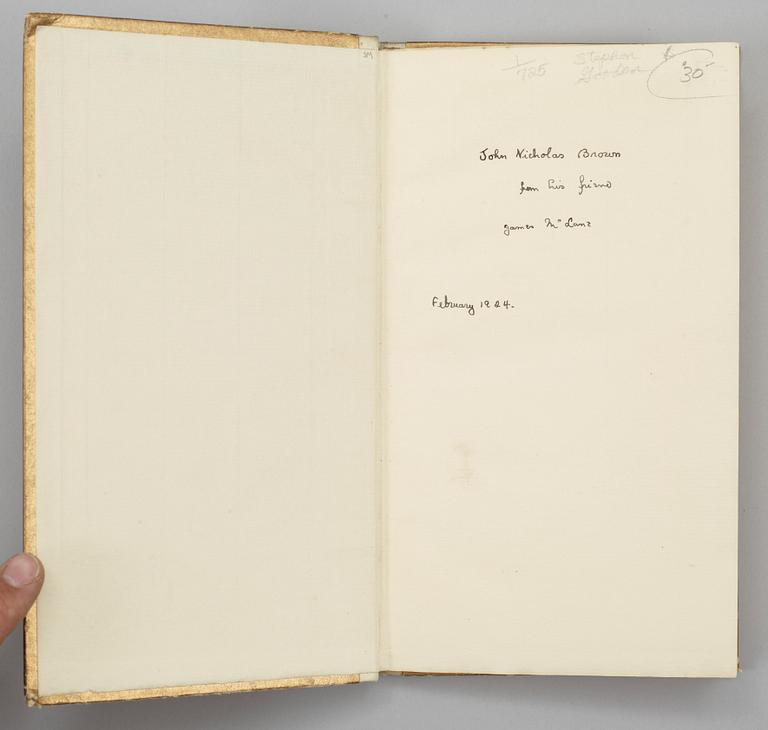 1/725
Stephen
Gooden
$30-
SM
John Nicholas Brown
from his friend
James McLane
February 1924.